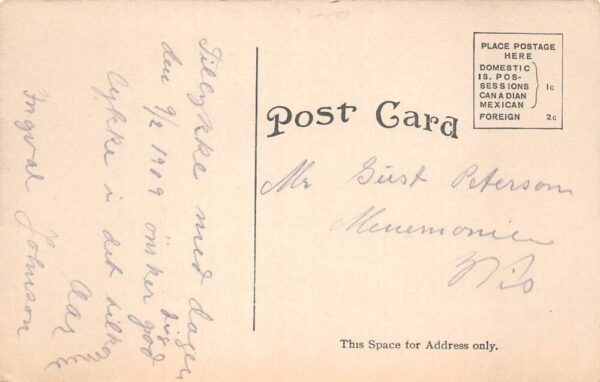 Tillykke med dagen
den 9/2 1909 önsker dig god
lykke i det tilkom
Aar
Ingval Johnson
Post Card
PLACE POSTAGE
HERE
DOMESTIC
IS. POS-
SESSIONS
CANADIAN
MEXICAN
1c
FOREIGN 2c
Mr Gust Peterson
Menemonie
Wis
This Space for Address only.